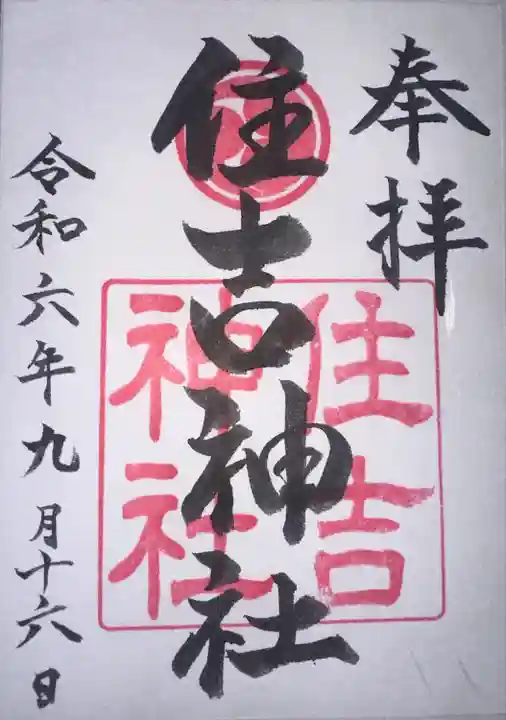 奉拝
住吉神社
住吉
神社
令和六年九月十六日